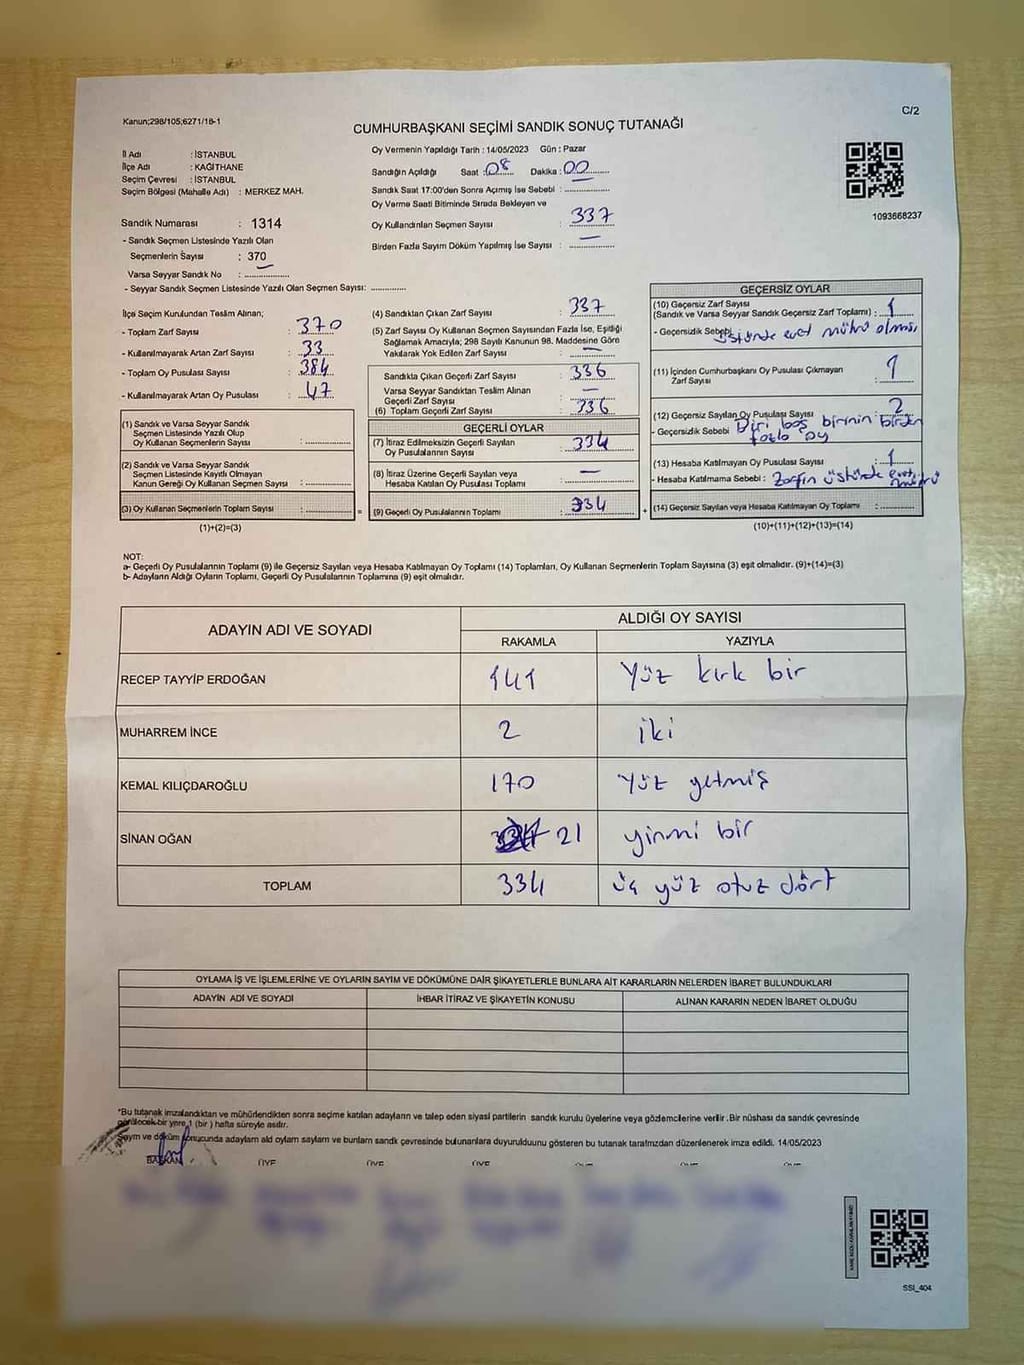 Kanun;298/105;6271/18-1
C/2
CUMHURBAŞKANI SEÇİMİ SANDIK SONUÇ TUTANAĞI
İl Adı : İSTANBUL
İlçe Adı : KAĞITHANE
Seçim Çevresi : İSTANBUL
Seçim Bölgesi (Mahalle Adı) : MERKEZ MAH.
Sandık Numarası : 1314
- Sandık Seçmen Listesinde Yazılı Olan
Seçmenlerin Sayısı : 370
Varsa Seyyar Sandık No : ............
- Seyyar Sandık Seçmen Listesinde Yazılı Olan Seçmen Sayısı: ............
Oy Vermenin Yapıldığı Tarih : 14/05/2023 Gün : Pazar
Sandığın Açıldığı Saat : 08 Dakika : 00
Sandık Saat 17:00'den Sonra Açımış İse Sebebi : ............
Oy Verme Saati Bitiminde Sırada Bekleyen ve
Oy Kullandırılan Seçmen Sayısı : 337
Birden Fazla Sayım Döküm Yapılmış İse Sayısı : —
1093668237
İlçe Seçim Kurulundan Teslim Alınan;
- Toplam Zarf Sayısı : 370
- Kullanılmayarak Artan Zarf Sayısı : 33
- Toplam Oy Pusulası Sayısı : 384
- Kullanılmayarak Artan Oy Pusulası : 47
(1) Sandık ve Varsa Seyyar Sandık
Seçmen Listesinde Yazılı Olup
Oy Kullanan Seçmenlerin Sayısı : ............
(2) Sandık ve Varsa Seyyar Sandık
Seçmen Listesinde Kayıtlı Olmayan
Kanun Gereği Oy Kullanan Seçmen Sayısı : ............
(3) Oy Kullanan Seçmenlerin Toplam Sayısı : ............
(1)+(2)=(3)
=
(4) Sandıktan Çıkan Zarf Sayısı : 337
(5) Zarf Sayısı Oy Kullanan Seçmen Sayısından Fazla İse, Eşitliği
Sağlamak Amacıyla; 298 Sayılı Kanunun 98. Maddesine Göre
Yakılarak Yok Edilen Zarf Sayısı : —
Sandıkta Çıkan Geçerli Zarf Sayısı : 336
Varsa Seyyar Sandıktan Teslim Alınan
Geçerli Zarf Sayısı : —
(6) Toplam Geçerli Zarf Sayısı : 336
GEÇERLİ OYLAR
(7) İtiraz Edilmeksizin Geçerli Sayılan
Oy Pusulalarının Sayısı : 334
(8) İtiraz Üzerine Geçerli Sayılan veya
Hesaba Katılan Oy Pusulası Toplamı : —
(9) Geçerli Oy Pusulalarının Toplamı : 334
+
GEÇERSİZ OYLAR
(10) Geçersiz Zarf Sayısı
(Sandık ve Varsa Seyyar Sandık Geçersiz Zarf Toplamı) : 1
- Geçersizlik Sebebi üstünde evet mührü olması
(11) İçinden Cumhurbaşkanı Oy Pusulası Çıkmayan
Zarf Sayısı : 1
(12) Geçersiz Sayılan Oy Pusulası Sayısı : 2
- Geçersizlik Sebebi Biri boş birinin birden
fazla oy
(13) Hesaba Katılmayan Oy Pusulası Sayısı : 1
- Hesaba Katılmama Sebebi : Zarfın üstünde evet
mührü
(14) Geçersiz Sayılan veya Hesaba Katılmayan Oy Toplamı : ............
(10)+(11)+(12)+(13)=(14)
NOT:
a- Geçerli Oy Pusulalarının Toplamı (9) ile Geçersiz Sayılan veya Hesaba Katılmayan Oy Toplamı (14) Toplamları, Oy Kullanan Seçmenlerin Toplam Sayısına (3) eşit olmalıdır. (9)+(14)=(3)
b- Adayların Aldığı Oyların Toplamı, Geçerli Oy Pusulalarının Toplamına (9) eşit olmalıdır.
ADAYIN ADI VE SOYADI
ALDIĞI OY SAYISI
RAKAMLA YAZIYLA
RECEP TAYYİP ERDOĞAN 141 Yüz kırk bir
MUHARREM İNCE 2 iki
KEMAL KILIÇDAROĞLU 170 Yüz yetmiş
SİNAN OĞAN 21 yirmi bir
TOPLAM 334 üç yüz otuz dört
OYLAMA İŞ VE İŞLEMLERİNE VE OYLARIN SAYIM VE DÖKÜMÜNE DAİR ŞİKAYETLERLE BUNLARA AİT KARARLARIN NELERDEN İBARET BULUNDUKLARI
ADAYIN ADI VE SOYADI İHBAR İTİRAZ VE ŞİKAYETİN KONUSU ALINAN KARARIN NEDEN İBARET OLDUĞU
*Bu tutanak imzalandıktan ve mühürlendikten sonra seçime katılan adayların ve talep eden siyasi partilerin sandık kurulu üyelerine veya gözlemcilerine verilir. Bir nüshası da sandık çevresinde
görülecek bir yere 1 (bir) hafta süreyle asılır.
Sayım ve döküm sonucunda adayların ald oyların sayların ve bunların sandık çevresinde bulunanlara duyurulduunu gösteren bu tutanak tarafmzdan düzenlenerek imza edildi. 14/05/2023
BAŞKAN ÜYE ÜYE ÜYE ÜYE ÜYE ÜYE
SSI_404